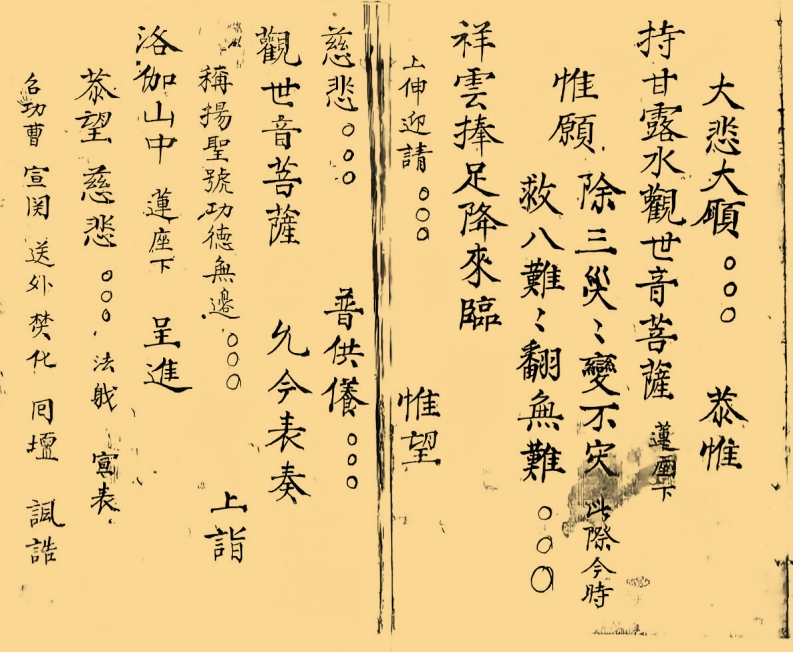 大悲大願。。。 恭惟
持甘露水觀世音菩薩 蓮座下
惟願 除三災〻變不災 此際今時
救八難〻翻無難。。。
祥雲捧足降來臨
上伸迎請。。。 惟望
慈悲。。。 普供養。。。
觀世音菩薩 允今表奏
稱揚聖號功德無邊。。。 上詣
洛伽山中 蓮座下 呈進
恭望慈悲。。。法戢 宣表
功曹 宣関 送外焚化 回壇 諷誥